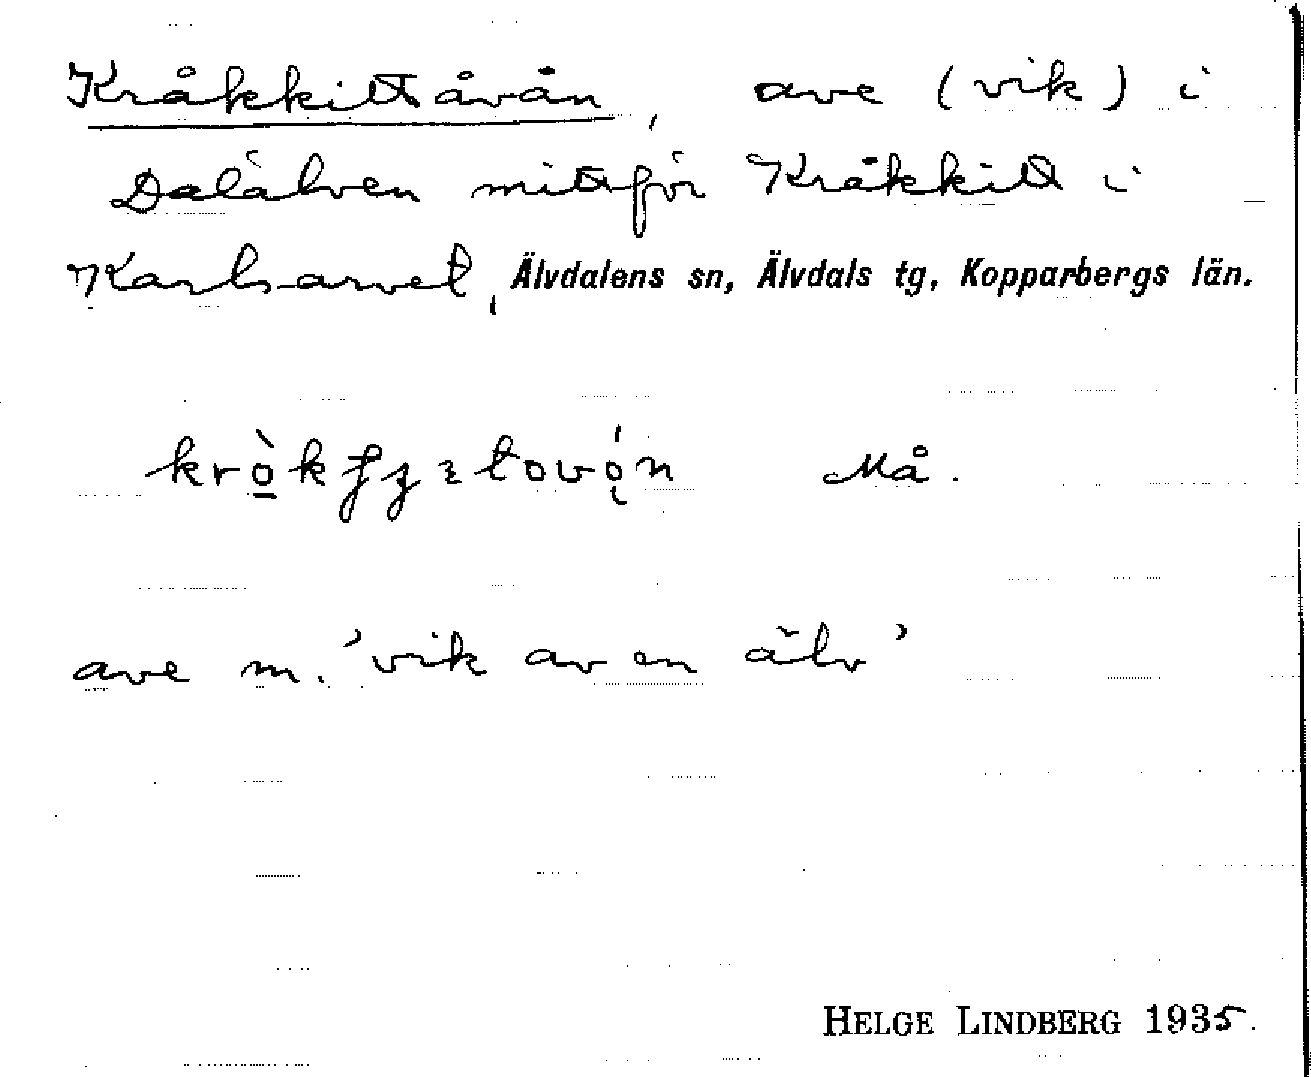 Kråkkittåvån, ave (vik) i
Dalälven mittför Kråkkitt i
Karlsarvet, Älvdalens sn, Älvdals tg, Kopparbergs län.
Må.
ave m. 'vik av en älv'
HELGE LINDBERG 1935.